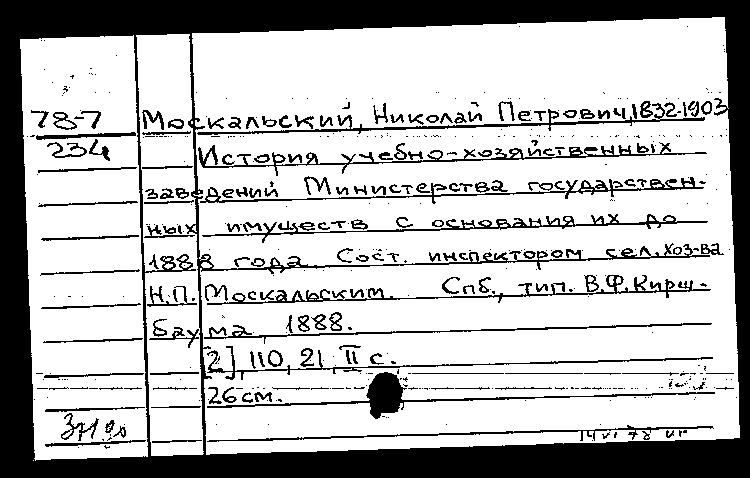 78-7 Москальский, Николай Петрович, 1832-1903
234 История учебно-хозяйственных
заведений Министерства государствен-
ных имуществ с основания их до
1888 года. Сост. инспектором сел. хоз-ва
Н.П. Москальским. Спб., тип. В.Ф. Кирш-
баума, 1888.
[2], 110, 21, II с.
26 см.
37190